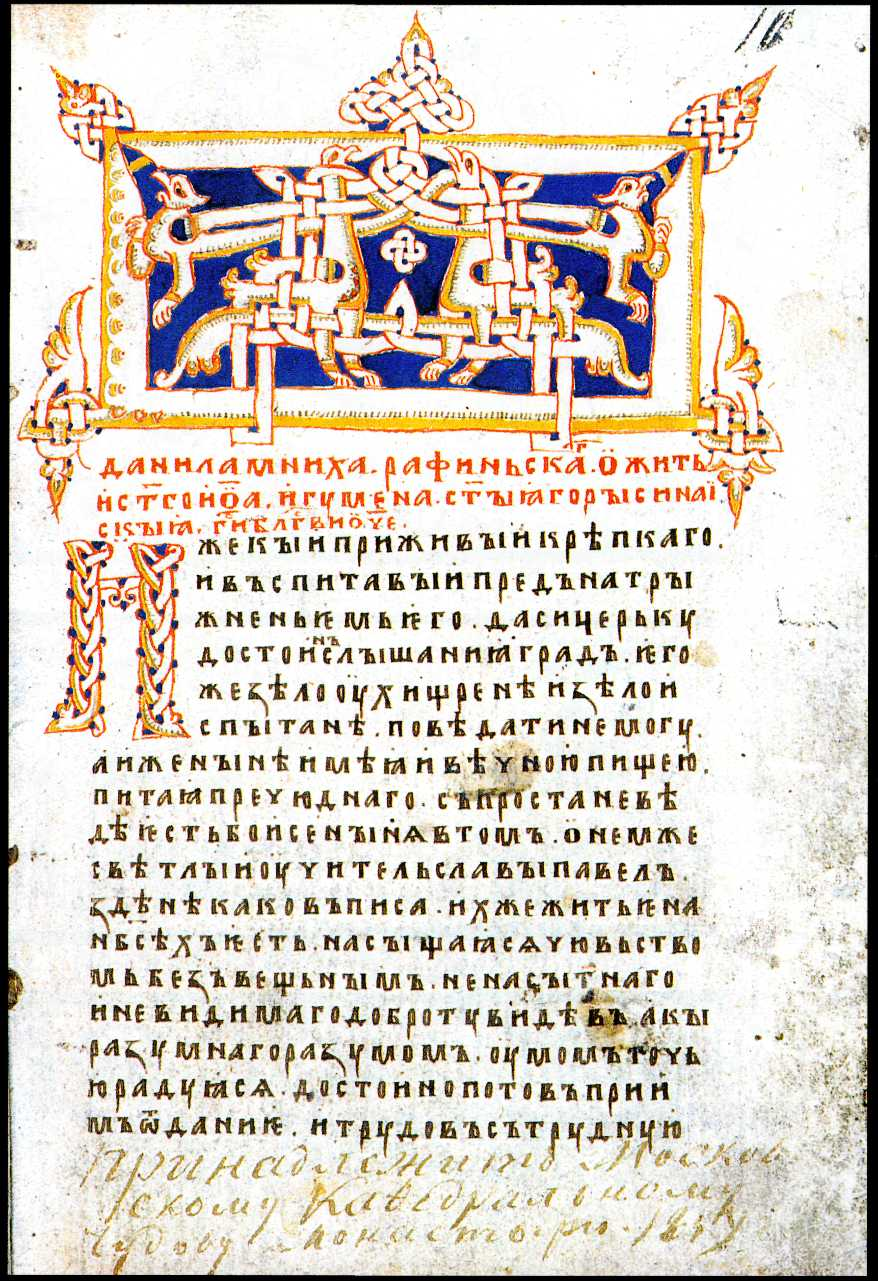 данила мниха. рафиньскаг҃. ѡ жить
и ст҃го иѡ҃а. игумена. ст҃ыꙗ горы синаі
скыꙗ. ги бл҃гви ѡч҃е.
П же кыи приживыи крѣпкаго.
и въспитавыи предъ натры
жненьѥмь ѥго. да сицерьку
достоинъ слышаниꙗ градъ. ѥго
же ꙁѣло оухищренѣ и ꙁѣло и
спытанѣ. повѣдати не могу.
аи же нынѣ имѣꙗ и вѣчною пищею.
питаꙗ преуюднаго. съ проста невѣ
дѣ ѥсть бо и се нынѧ в томъ. ѡ немже
свѣтлыи оучитель славы павелъ.
ꙁдѣ нѣкако въписа. ихже житьѥ на
нб҃сѣхъ ѥсть. насыщаꙗсѧ чювьство
мь беꙁъвещьнымъ. ненасытнаго
и невидимаго доброту видѣвъ. акы
раꙁумнаго раꙁумомъ. оумомъ точь
ю радуꙗсѧ. достоино потовъ прии
мъ ѿданиѥ. и трудовъ съ трудную
принадлежитъ Москов
скому Каѳедральному
Чудову монастырю. 18